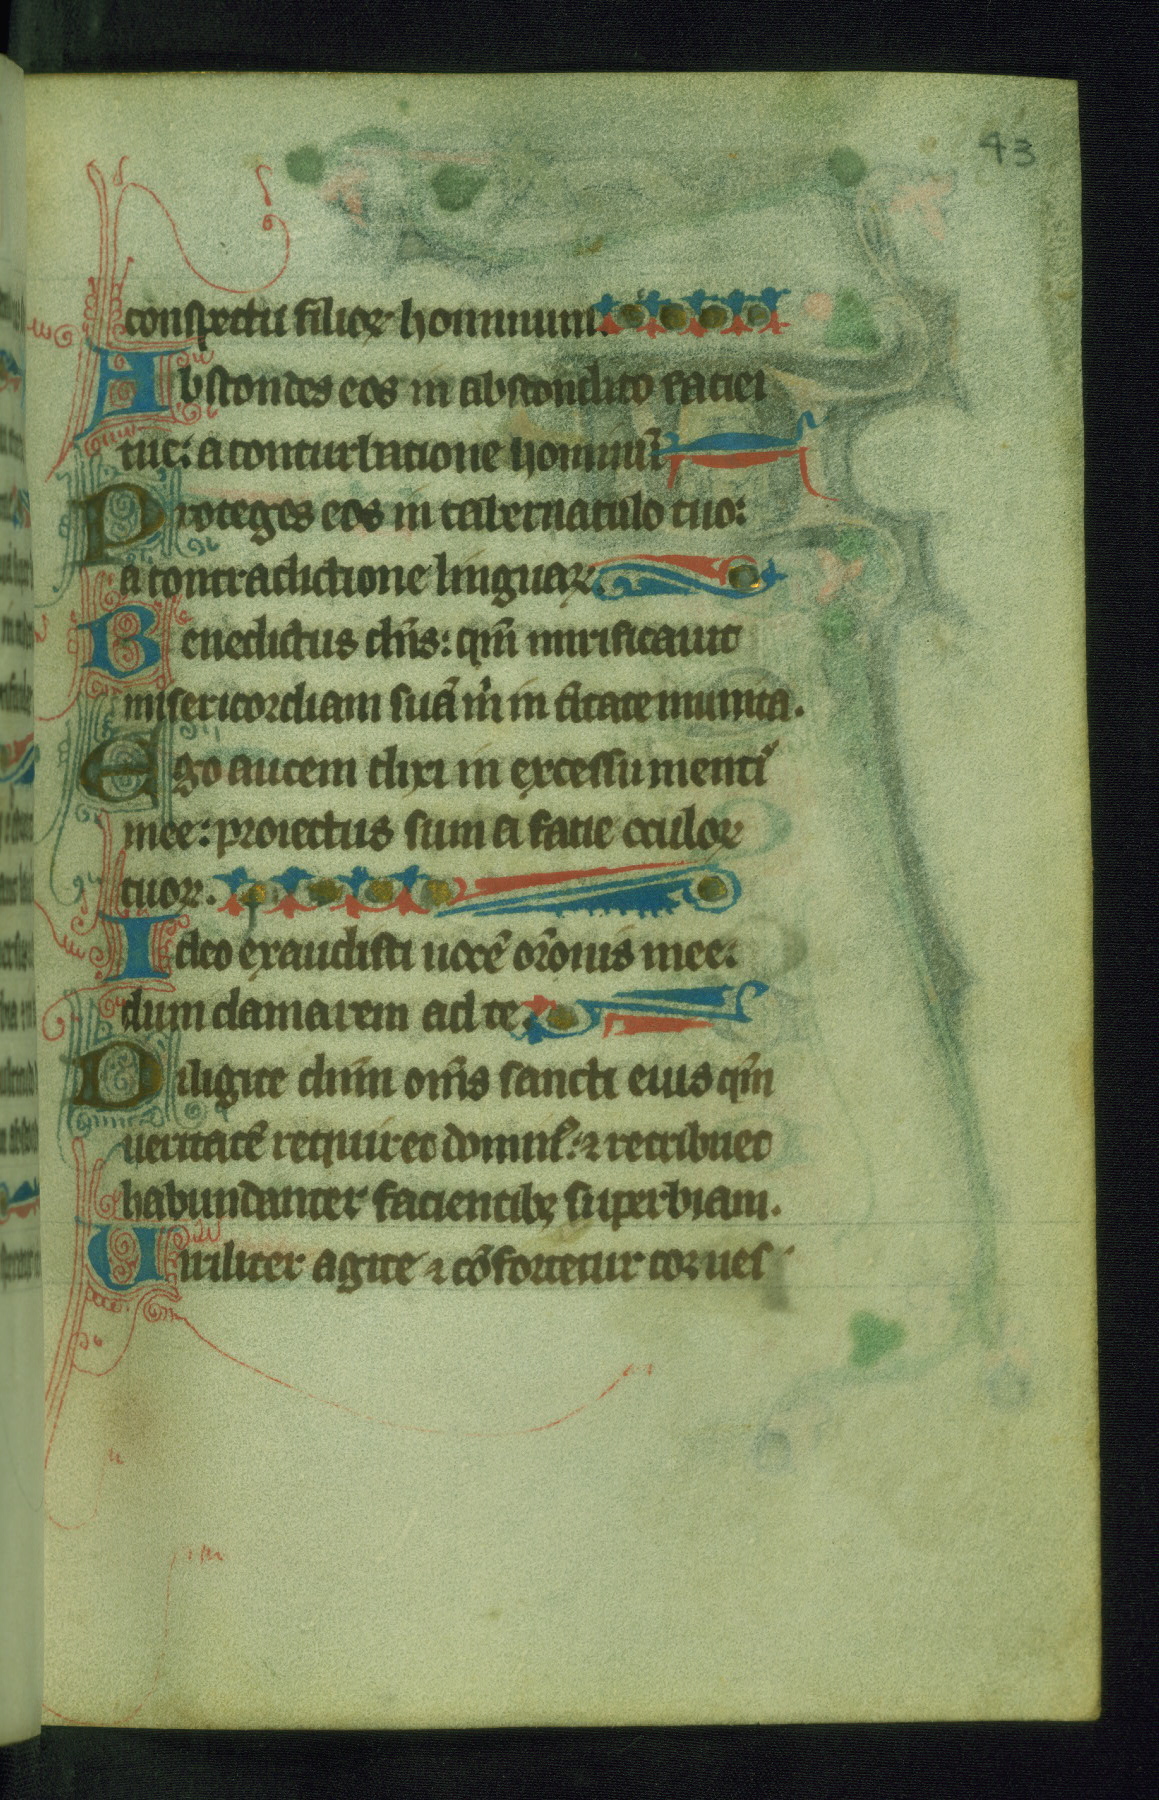 43
conspectu filioꝝ hominum.
Abscondes eos in abscondito faciei
tue: a conturbatione hominū
Proteges eos in tabernaculo tuo:
a contradictione linguaꝝ.
Benedictus dn̄s: qm̄ mirificauit
misericordiam suā m̄ in ciuitate munita.
Ego autem dixi in excessu mentis
mee: proiectus sum a facie oculoꝝ
tuoꝝ.
Ideo exaudisti uocē orōnis mee:
dum clamarem ad te.
Diligite dnm̄ om̄s sancti eius qm̄
ueritatē requiret dominus: ⁊ retribuet
habundanter facientibꝫ superbiam.
Uiriliter agite ⁊ cōfortetur cor ues